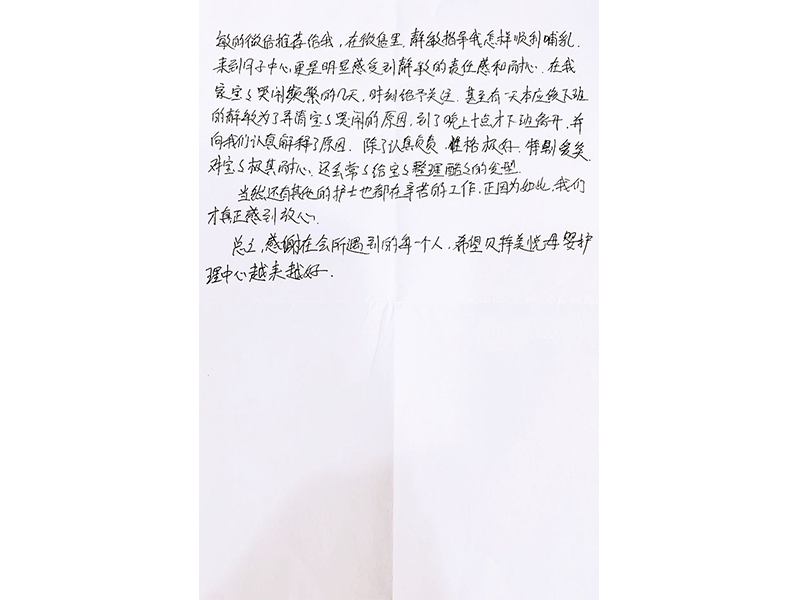 敏的微信推荐给我，在微信里，静敏指导我怎样顺利哺乳。
来到月子中心更是明显感受到静敏的责任感和耐心。在我
家宝宝哭闹频繁的几天，时刻给予关注。甚至有一天本应该下班
的静敏为了弄清宝宝哭闹的原因，到了晚上十点才下班离开，并
向我们认真解释了原因。除了认真负责，性格极好，特别爱笑
对宝宝极其耐心，还会常常给宝宝整理酷酷的发型。
当然还有其他的护士也都在辛苦的工作，正因为如此，我们
才真正感到放心。
总之，感谢在会所遇到的每一个人，希望贝梓美悦母婴护
理中心越来越好。